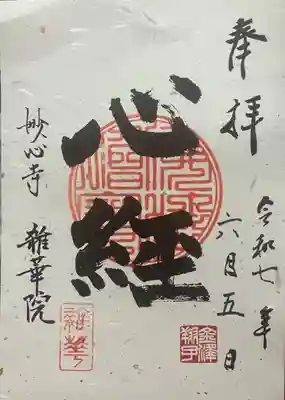 奉拝
令和七年
六月五日
心経
妙心寺 雑華院
雑華
金澤
翔子